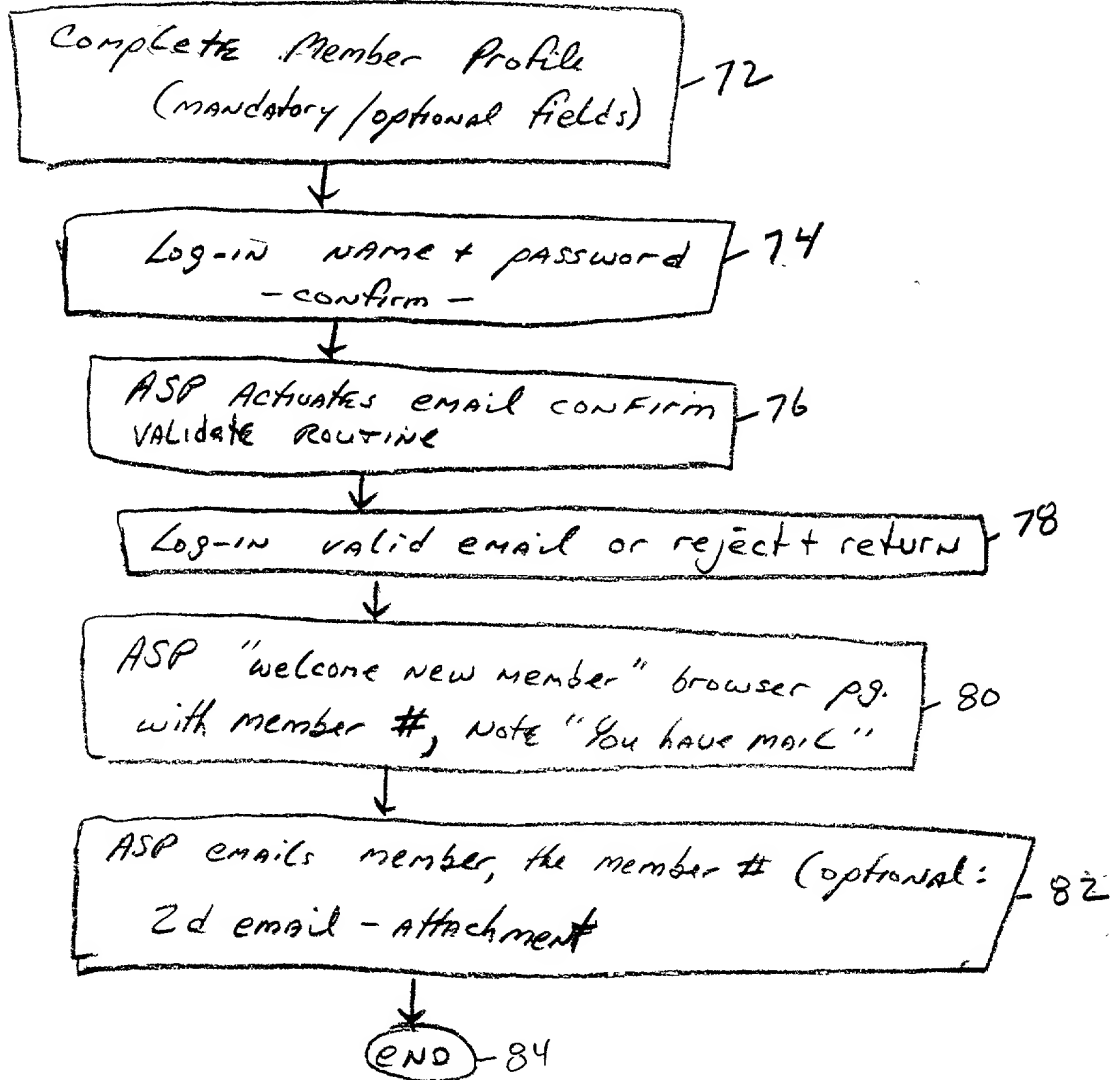 Complete Member Profile
(mandatory/optional fields)
72
Log-in name + password
- confirm -
74
ASP Activates email confirm
validate routine
76
Log-in valid email or reject + return
78
ASP "welcome new member" browser pg.
with member #, note "You have mail"
80
ASP emails member, the member # (optional:
2d email - attachment
82
END
84